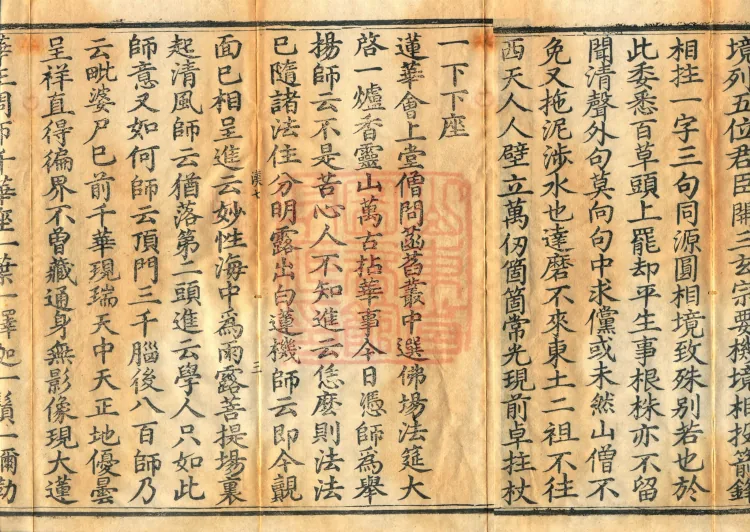 境列五位君臣開三玄宗要機境相投箭鋒
相拄一字三句同源圓相境致殊別若也於
此委悉百草頭上罷却平生事根株亦不留
聞清聲外句莫向句中求儻或未然山僧不
免又拖泥涉水也達磨不來東土二祖不往
西天人人壁立萬仞箇箇常光現前卓拄杖
一下下座
蓮華會上堂僧問菡萏叢中選佛場法筵大
啓一爐香靈山萬古拈華事今日憑師爲舉
揚師云不是苦心人不知進云恁麽則法法
已隨諸法住分明露出白蓮機師云即今覿
面已相呈進云妙性海中爲雨露菩提場裏
漢七
三
起清風師云猶落第二頭進云學人只如此
師意又如何師云頂門三千腦後八百師乃
云毗婆尸巳前千華現瑞天中天正地優曇
呈祥直得徧界不曾藏通身無影像現大蓮
華王問師千華座一葉一釋迦一鬚一彌勒